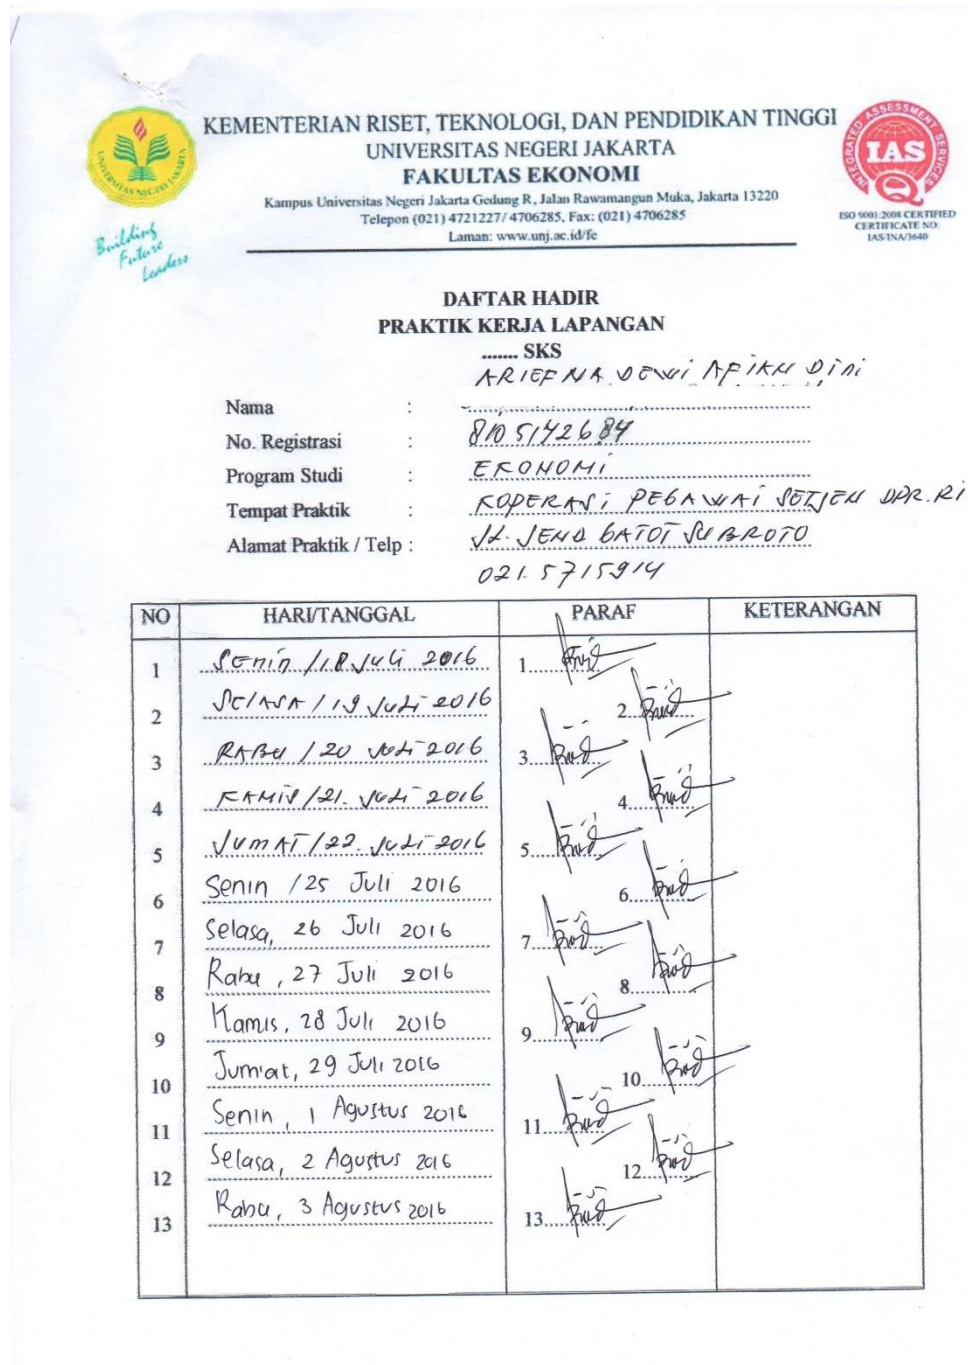 KEMENTERIAN RISET, TEKNOLOGI, DAN PENDIDIKAN TINGGI
UNIVERSITAS NEGERI JAKARTA
FAKULTAS EKONOMI
Kampus Universitas Negeri Jakarta Gedung R, Jalan Rawamangun Muka, Jakarta 13220
Telepon (021) 4721227/ 4706285, Fax: (021) 4706285
Laman: www.unj.ac.id/fe
UNIVERSITAS NEGERI JAKARTA
Building
Future
Leaders
INTEGRATED ASSESSMENT SERVICES
IAS
ISO 9001:2008 CERTIFIED
CERTIFICATE NO:
IAS/INA/3640
DAFTAR HADIR
PRAKTIK KERJA LAPANGAN
....... SKS
ARIEFNA DEWI AFIKH DINI
Nama :
No. Registrasi : 8105142684
Program Studi : EKONOMI
Tempat Praktik : KOPERASI PEGAWAI SETJEN DPR.RI
Alamat Praktik / Telp : JL. JEND GATOT SUBROTO
021.5715914
NO HARI/TANGGAL PARAF KETERANGAN
1 SENIN /18 JULI 2016 1
2 SELASA / 19 JULI 2016 2
3 RABU / 20 JULI 2016 3
4 KAMIS /21. JULI 2016 4
5 JUMAT /22. JULI 2016 5
6 Senin /25 Juli 2016 6
7 Selasa, 26 Juli 2016 7
8 Rabu, 27 Juli 2016 8
9 Kamis, 28 Juli 2016 9
10 Jum'at, 29 Juli 2016 10
11 Senin, 1 Agustus 2016 11
12 Selasa, 2 Agustus 2016 12
13 Rabu, 3 Agustus 2016 13